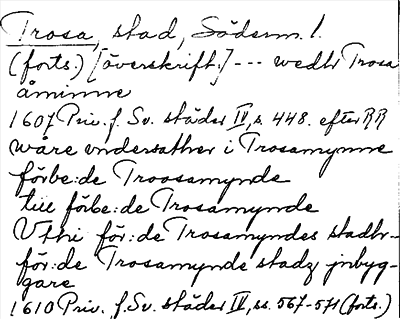 Trosa, stad, Södsm. l.
(forts.) [överskrift:] --- wedh Trosa
åminne
1607 Priv. f. Sv. städer IV, s. 448. efter RR
wåre vndersåther i Trosamynne
förbe:de Troosamynde
till förbe:de Trosamynde
Vthi för:de Trosamyndes stadh-
för:de Trosamynde stadz jnbyg-
gare
1610 Priv. f. Sv. städer IV, ss. 567-571 (forts.)